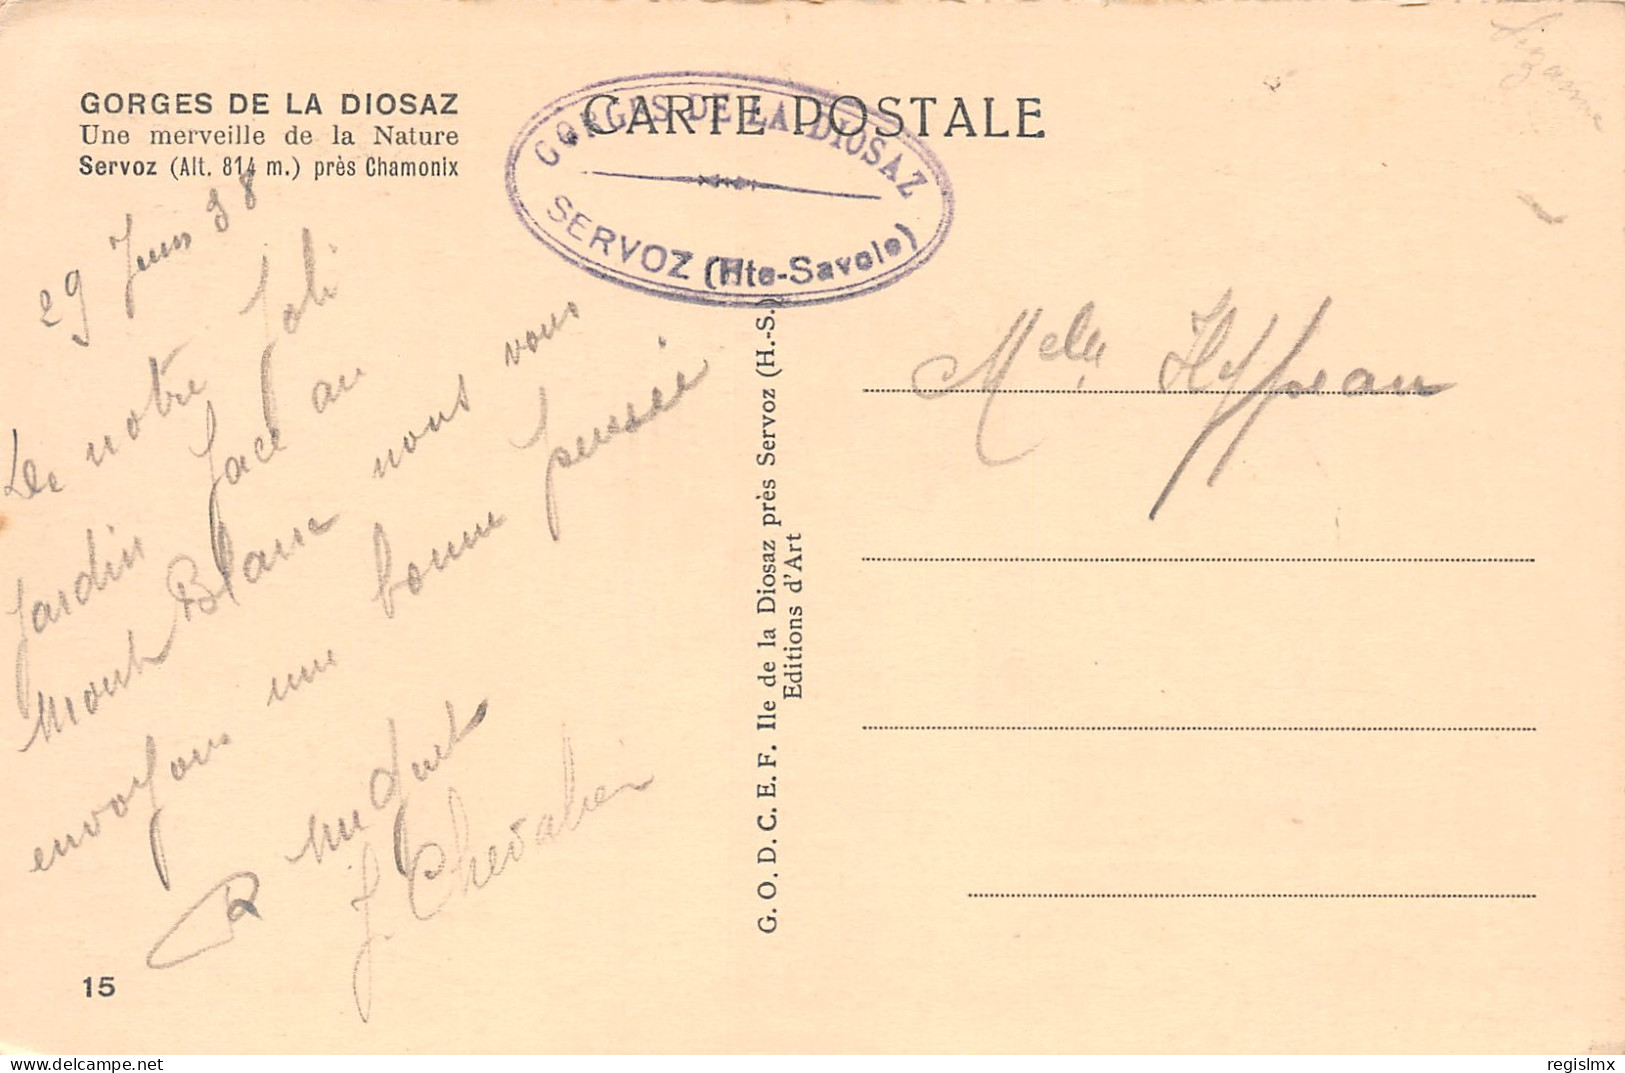 GORGES DE LA DIOSAZ
Une merveille de la Nature
Servoz (Alt. 814 m.) près Chamonix
CARTE POSTALE
GORGES DE LA DIOSAZ
SERVOZ (Hte-Savoie)
29 Juin 38
De notre Joli
Jardin face au
Mont Blanc nous vous
envoyons une bonne pensée
J Chevalier
Melle
G. O. D. C. E. F. Ile de la Diosaz près Servoz (H.-S.)
Editions d'Art
Suzanne
15
regislmx